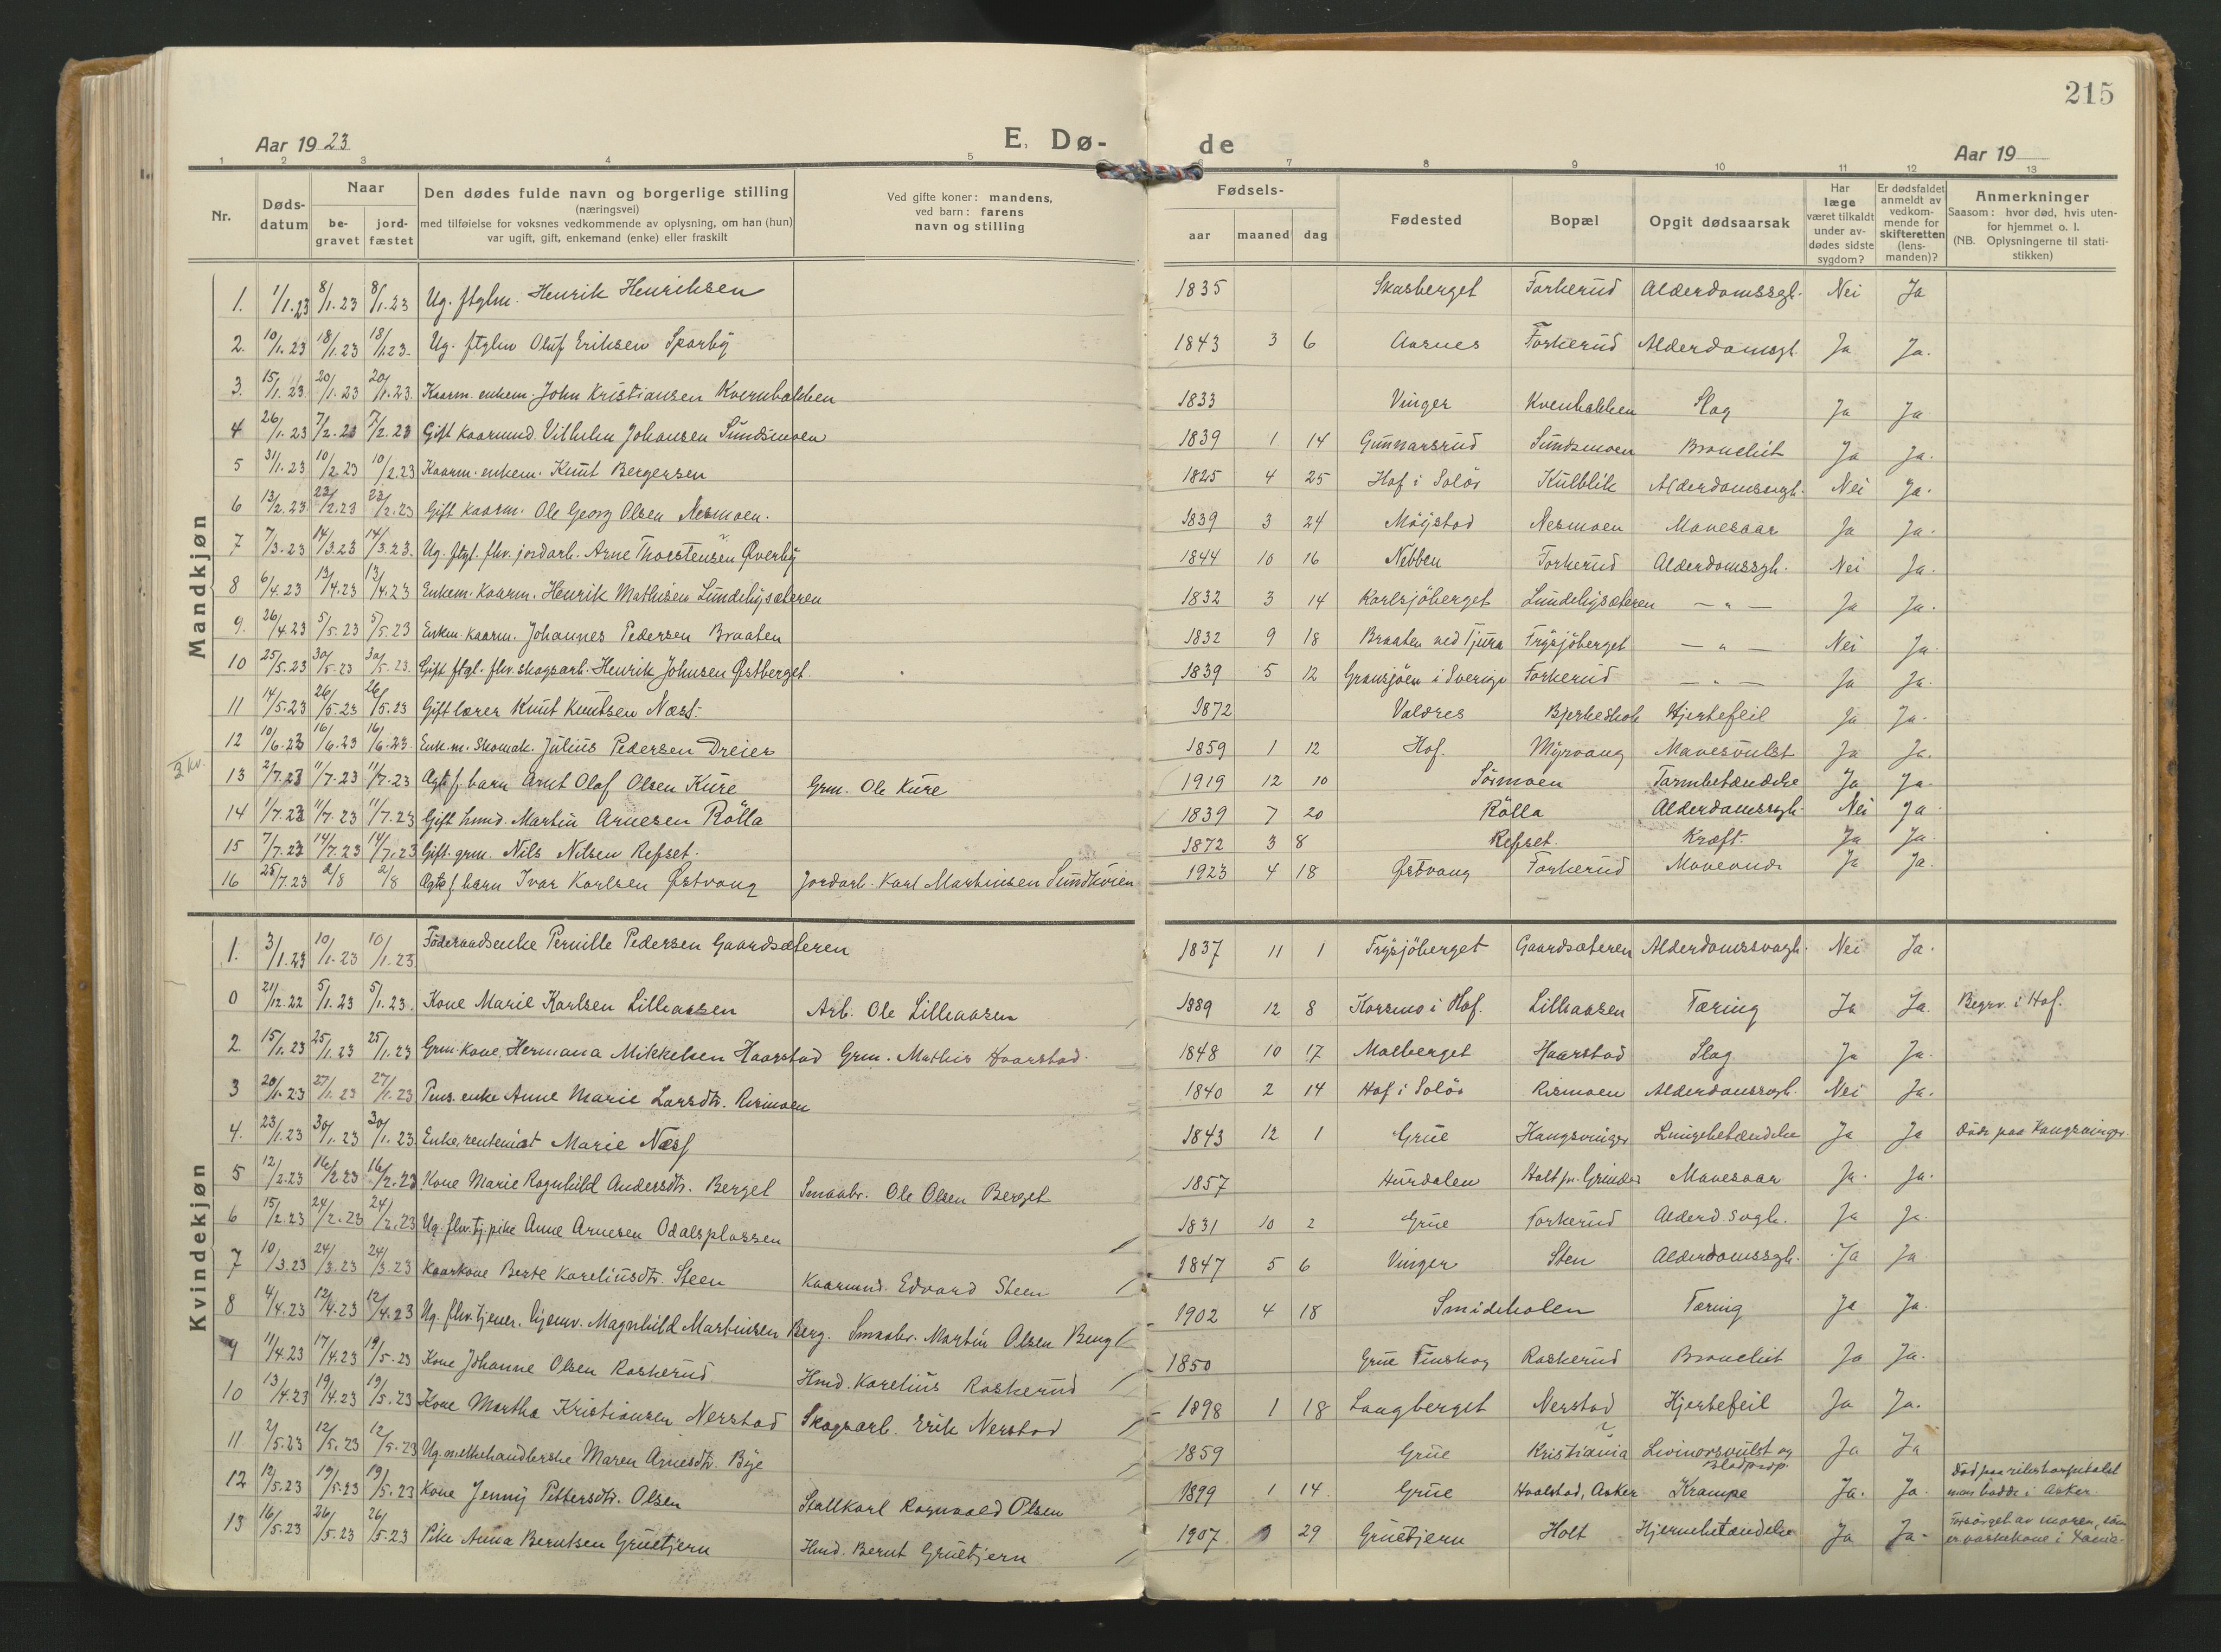 215
Aar 19 23
E. Dø-
de
Aar 19
1 2 3 4 5 6 7 8 9 10 11 12 13
Nr.
Døds-
datum
Naar
be-
gravet
jord-
fæstet
Den dødes fulde navn og borgerlige stilling
(næringsvei)
med tilføielse for voksnes vedkommende av oplysning, om han (hun)
var ugift, gift, enkemand (enke) eller fraskilt
Ved gifte koner: mandens,
ved barn: farens
navn og stilling
Fødsels-
aar maaned dag
Fødested
Bopæl
Opgit dødsaarsak
Har
læge
været tilkaldt
under av-
dødes sidste
sygdom?
Er dødsfaldet
anmeldt av
vedkom-
mende for
skifteretten
(lens-
manden)?
Anmerkninger
Saasom: hvor død, hvis uten-
for hjemmet o. l.
(NB. Oplysningerne til stati-
stikken)
Mandkjøn
1. 1/1.23 8/1.23 8/1.23 Ug. ftglm. Henrik Henriksen 1835 Skasberget Torkerud Alderdomssgh. Nei Ja
2. 10/1.23 18/1.23 18/1.23. Ug. ftglm Oluf Eriksen Sparby 1843 3 6 Aarnes Torkerud Alderdomsgh. Ja Ja.
3. 15/1.23 20/1.23 20/1.23. Kaarm. enkem. John Kristiansen Kvernbakken 1833 Vinger Kvenbakken Slag Ja Ja
4 26/1.23 7/2.23 7/2.23 Gift kaarmd. Vilhelm Johansen Sundsmoen 1839 1 14 Gunnarsrud Sundsmoen Bronchit Ja Ja.
5 31/1.23 10/2.23 10/2.23 Kaarm. enkem. Knut Bergersen 1825 4 25 Hof i Solør Kulblik Alderdomssgh. Nei Ja.
6 13/2.23 23/2.23 23/2.23 Gift kaarm. Ole Georg Olsen Nesmoen. 1839 3 24 Möystad Nesmoen Mavesaar Ja Ja.
7 7/3.23 14/3.23 14/3.23. Ug. ftgl. fhv. jordarb. Arne Thorstensen Øverby 1844 10 16 Nebben Torkerud Alderdomssgh. Nei Ja.
8 6/4.23 13/4.23 13/4.23 Enkem. kaarm. Henrik Mathisen Lundebysæteren 1832 3 14 Karlsjöberget Lundebysæteren — " — Ja Ja.
9. 26/4.23 5/5.23 5/5.23 Enkem. kaarm. Johannes Pedersen Braaten 1832 9 18 Braaten ved Tjura Frysjöberget — " — Nei Ja
10 25/5.23 30/5.23 30/5.23. Gift ftgl. fhv. skogsarb. Henrik Johnsen Østberget. 1839 5 12 Gransjøen i Sverige Torkerud — " — Ja Ja.
11 14/5.23 26/5.23 26/5.23 Gift lærer Knut Knutsen Næss. 1872 Valdres Bjerkeskok Hjertefeil Ja Ja.
12 10/6.23 16/6.23 16/6.23. Enk.m. Skomak. Julius Pedersen Dreier 1859 1 12 Hof. Myrvang Mavesvulst Ja Ja.
13 2/7.23 11/7.23 11/7.23 Ægtef. barn Arnt Olaf Olsen Kure Grm. Ole Kure 1919 12 10 Sörmoen Tarmbetændelse Ja Ja.
14 1/7.23 11/7.23 11/7.23 Gift hmd. Martin Arnesen Rölla 1839 7 20 Rölla Alderdomssgh. Nei Ja
15 7/7.23 14/7.23 14/7.23 Gift. grm. Nils Nilsen Refset. 1872 3 8 Refset. Kræft. Ja Ja
16 25/7.23 2/8 2/8 Ægtef. barn Ivar Karlsen Østvang Jordarb. Karl Martinsen Sundkoien 1923 4 18 Østvang Torkerud Maveonde Ja Ja.
Kvindekjøn
1. 3/1.23 10/1.23 10/1.23 Föderaadsenke Pernille Pedersen Gaardsæteren 1837 11 1 Frysjöberget Gaardsæteren Alderdomssvagh. Nei Ja.
0 21/12.22 5/1.23 5/1.23. Kone Marie Karlsen Lilleaasen Arb. Ole Lilleaasen 1889 12 8 Korsmo i Hof. Lilleaasen Tæring Ja Ja. Begrv. i Hof.
2. 15/1.23 25/1.23 25/1.23 Grm. kone, Hermana Mikkelsen Haarstad Grm. Mathis Haarstad. 1848 10 17 Malberget Haarstad Slag Ja Ja.
3 20/1.23 27/1.23 27/1.23 Pens. enke Anne Marie Larsdtr. Rismoen 1840 2 14 Hof i Solör Rismoen Alderdomssgh. Nei Ja.
4. 23/1.23 30/1.23 30/1.23. Enke, renteniat Marie Næss 1843 12 1 Grue Kongsvinger Lungebetændelse Ja Ja Döde paa Kongsvinger.
5 12/2.23 16/2.23 16/2.23 Kone Marie Ragnhild Andersdtr. Berget Smaabr. Ole Olsen Berget 1857 Hurdalen Holt pr. Grinder Mavesaar Ja. Ja.
6 15/2.23 24/2.23 24/2.23 Ug. fhv. tj.pike Anne Arnesen Odalsplassen 1831 10 2 Grue Torkerud Alderd.svgh. Ja Ja.
7 10/3.23 24/3.23 24/3.23 Kaarkone Berte Kareliusdtr. Steen Kaarmd. Edvard Steen 1847 5 6 Vinger Sten Alderdomssgh. Ja Ja
8 4/4.23 12/4.23 12/4.23 Ug. fhv. tjener. hjemv. Magnhild Martinsen Berg. Smaabr. Martin Olsen Berg 1902 4 18 Smideholen Tæring Ja Ja.
9 11/4.23 17/4.23 19/5.23 Kone Johanne Olsen Raskerud Hmd. Karelius Raskerud 1850 Grue Finskog Raskerud Bronchit Ja Ja.
10 13/4.23 19/4.23 19/5.23 Kone Martha Kristiansen Nerstad Skogsarb. Erik Nerstad 1898 1 18 Langberget Nerstad Hjertefeil Ja Ja.
11 2/5.23 12/5.23 12/5.23 Ug. melkehandlerske Maren Arnesdtr. Bye 1859 Grue Kristiania Livmorsvulst og Ja Ja
12 12/5.23 19/5.23 19/5.23 Kone Jenny Pettersdtr. Olsen Stallkarl Ragnvald Olsen 1899 1 14 Grue Hvalstad, Asker Krampe Ja. Ja
man bodde i Asker.
13 16/5.23 26/5.23 26/5.23 Pike Anna Berntsen Gruetjern Hmd. Bernt Gruetjern 1907 29 Gruetjern Holt Hjernebetændelse Ja Ja. Forsörget av moren, som
er vaskekone i